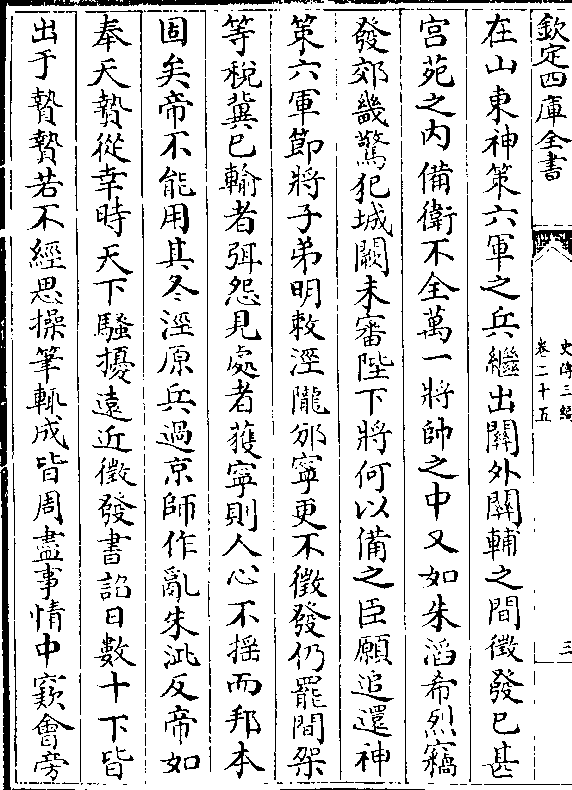 欽定四庫全書
史傳三編
卷二十五
三
在山東神策六軍之兵繼出關外關輔之間徵發已甚
宫苑之内備衛不全萬一將帥之中又如朱滔希烈竊
發郊畿驚犯城闕未審陛下將何以備之臣願追還神
策六軍節將子弟明敕涇隴邠寧更不徵發仍罷間架
等税冀已輸者弭怨見處者獲寧則人心不摇而邦本
固矣帝不能用其冬涇原兵過京師作亂朱泚反帝如
奉天贄從幸時天下騷擾遠近徵發書詔日數十下皆
出于贄贄若不經思操筆輒成皆周盡事情中窽會旁